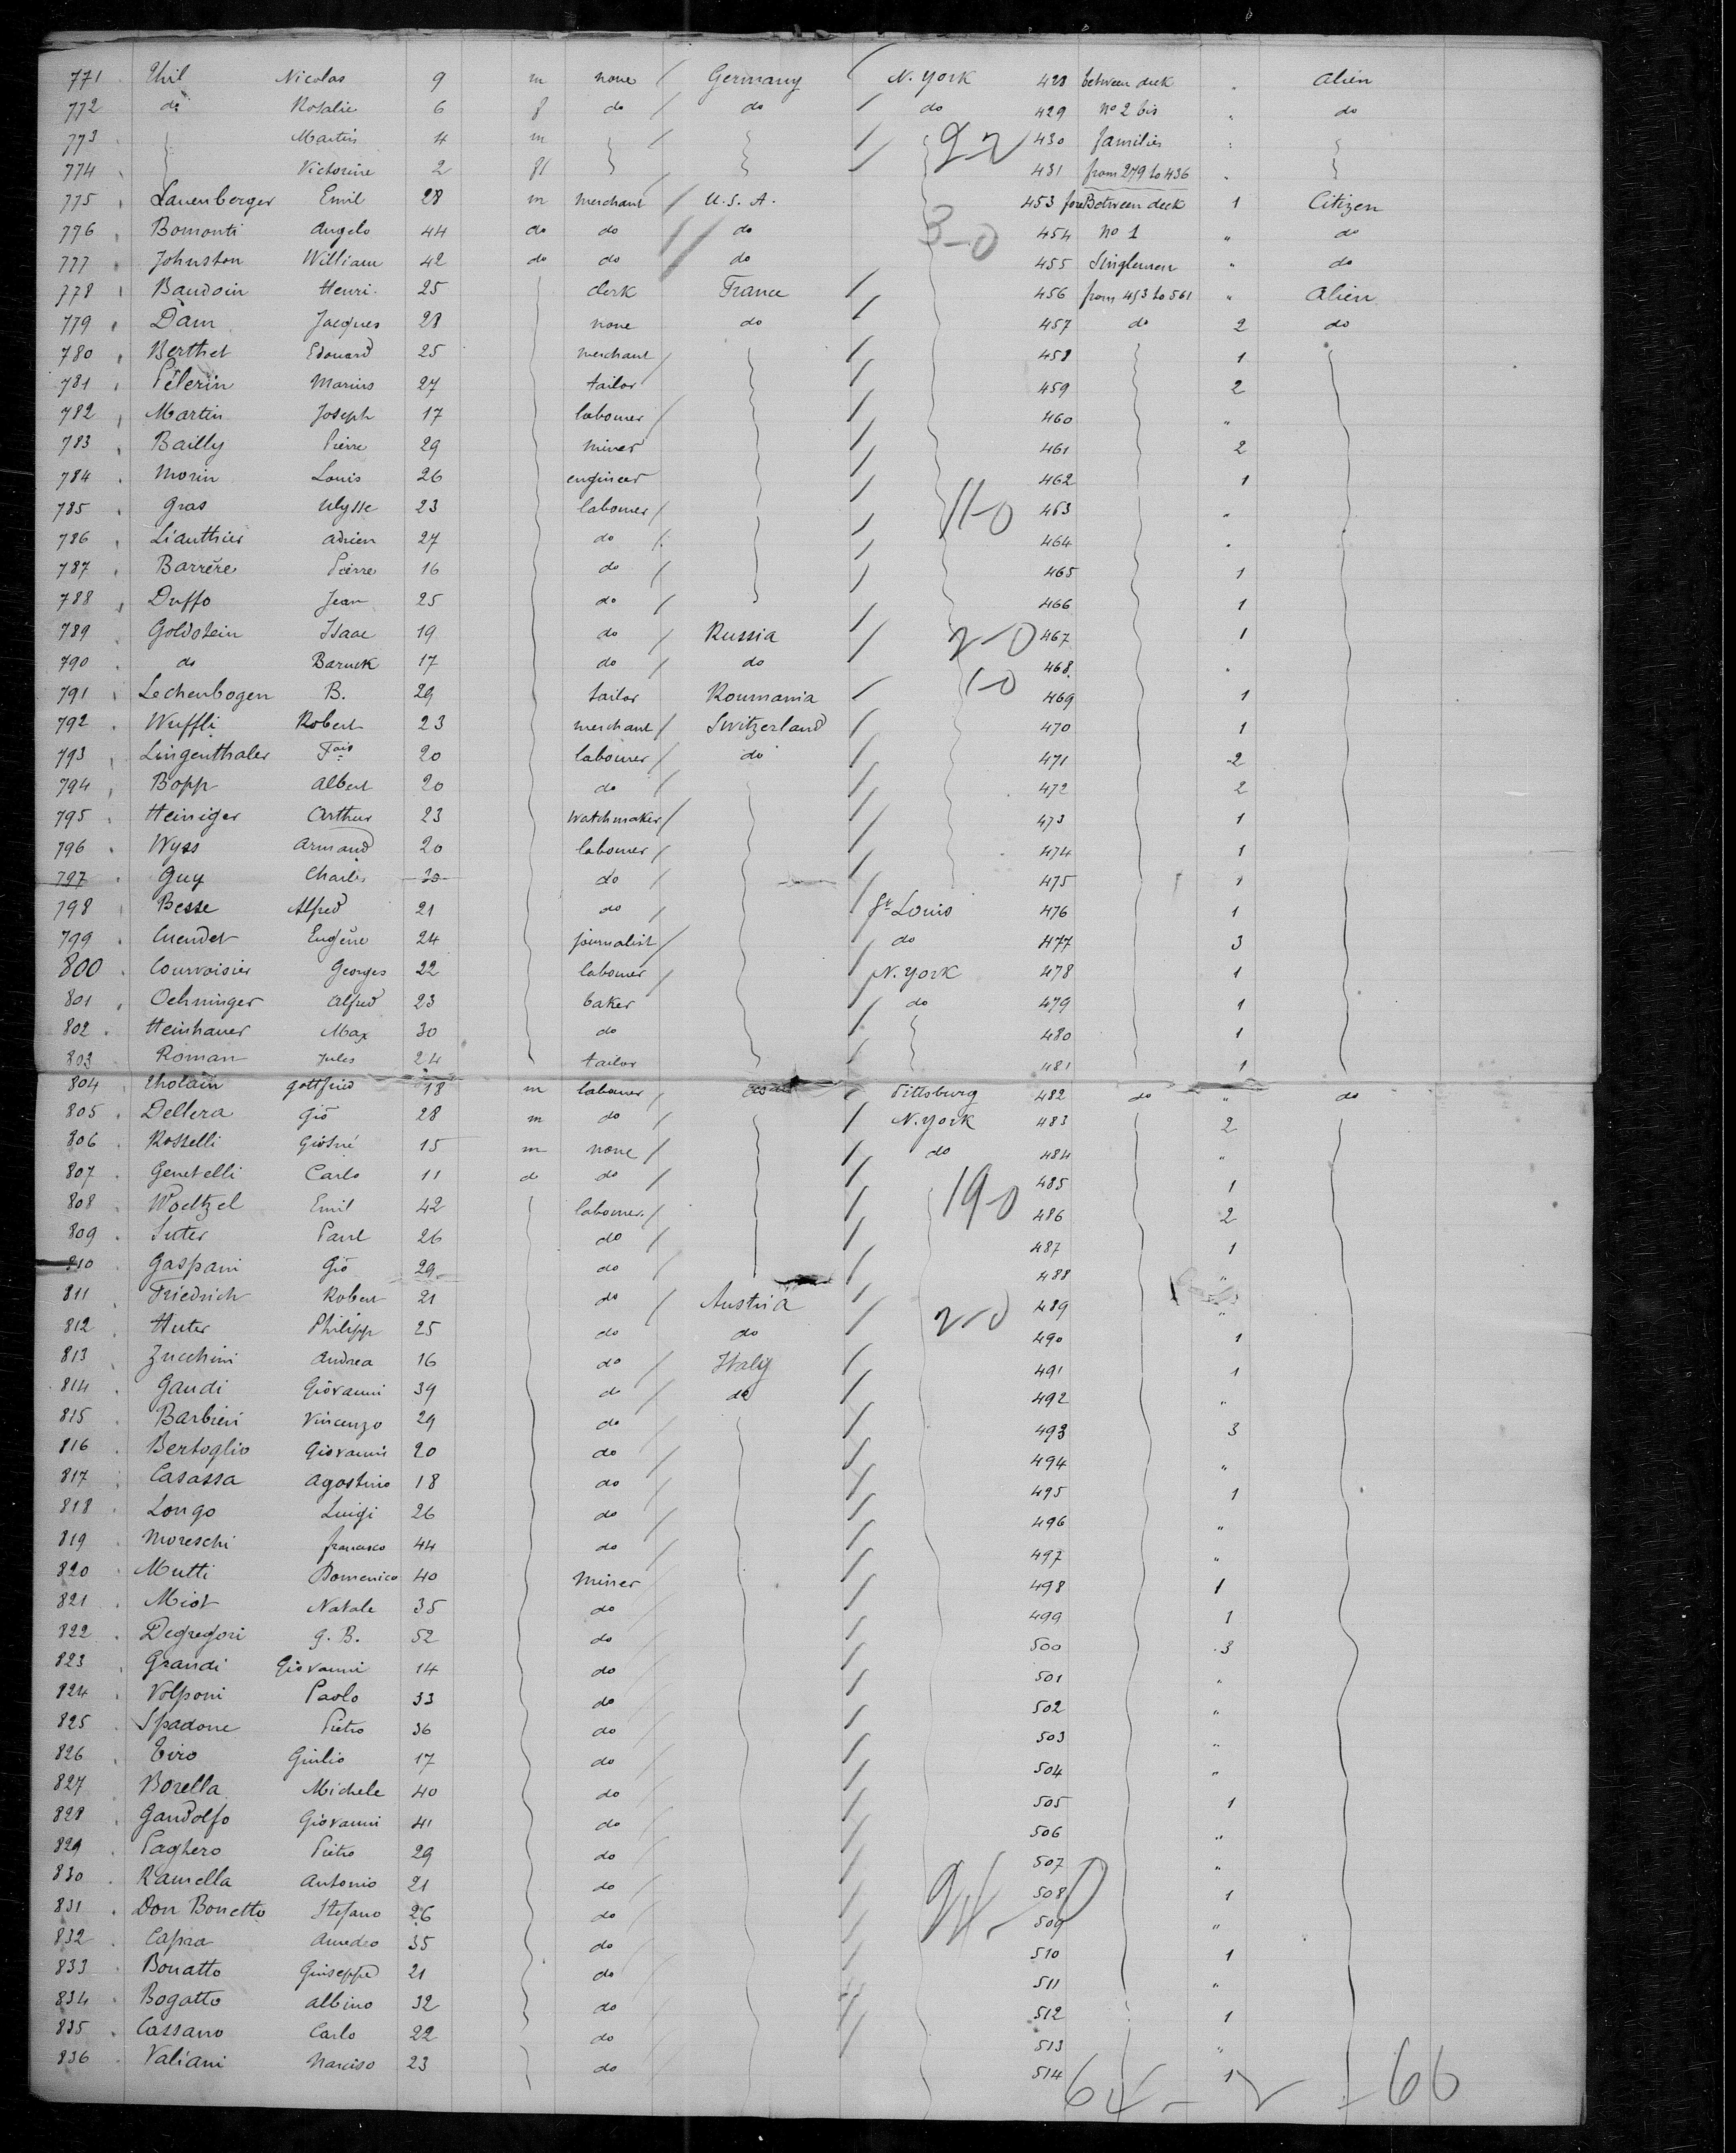 771 Thil Nicolas 9 m none / Germany / N. York 428 between deck " Alien
772 do Rosalie 6 f do / do / do 429 no 2 bis " do
773 Martin 4 m / / 22 430 families "
774 Victorine 2 fl / 431 from 279 to 436 "
775 Lauenberger Emil 28 m merchant / U.S.A. 453 fore Between deck 1 Citizen
776 Bomonti Angelo 44 do do // do 3-0 454 no 1 " do
777 Johnston William 42 do do / do 455 Singlemen " do
778 Baudoin Henri 25 clerk France / 456 from 453 to 561 " Alien
779 Dam Jacques 28 none do / 457 do 2 do
780 Berthet Edouard 25 merchant / / 458 1
781 Pèlerin Marius 27 tailor / 459 2
782 Martin Joseph 17 labourer / / 460 "
783 Bailly Pierre 29 miner / 461 2
784 Morin Louis 26 engineer / 462 1
785 Gras Ulysse 23 labourer / / 11-0 463 "
786 Liauthier Adrien 27 do / / 464 "
787 Barrère Pierre 16 do / / 465 1
788 Duffo Jean 25 do / / 466 1
789 Goldstein Isaac 19 do / Russia / 2-0 467 1
790 do Baruck 17 do / do 468 "
791 Lechenbogen B. 29 tailor Roumania / 1-0 469 1
792 Wuffli Robert 23 merchant / Switzerland / 470 1
793 Lingenthaler Fois 20 labourer / do / 471 2
794 Bopp Albert 20 do / / 472 2
795 Heiniger Arthur 23 watchmaker / / 473 1
796 Wyss Armand 20 labourer / / 474 1
797 Guy Charles 30 do / / 475 1
798 Besse Alfred 21 do / / St Louis 476 1
799 Cuendet Eugène 24 journalist / / do 477 3
800 Courvoisier Georges 22 labourer / / N. York 478 1
801 Oehninger Alfred 23 baker / do 479 1
802 Heinhauer Max 30 do / 480 1
803 Roman Jules 24 tailor / 481 1
804 Gottfried 18 m labourer / do / Pittsburg 482 do " do
805 Dellera Gio 28 m do / / N. York 483 2
806 Rosselli Giosué 15 m none / / do 484 "
807 Genetelli Carlo 11 do do / / 485 1
808 Woeltzel Emil 42 labourer / / 19-0 486 2
809 Suter Paul 26 do / / 487 1
810 Gaspani Gio 29 do / / 488 "
811 Friedrich Robert 21 do / Austria / 489 "
812 Huter Philipp 25 do do / 2-0 490 1
813 Zucchini Andrea 16 do / Italy / 491 1
814 Gaudi Giovanni 39 do / do / 492 "
815 Barbieri Vincenzo 29 do / / 493 3
816 Bertoglio Giovanni 20 do / / 494 "
817 Casassa Agostino 18 do / / 495 1
818 Longo Luigi 26 do / / 496 "
819 Moreschi francesco 44 do / / 497 "
820 Mutti Domenico 40 miner / / 498 1
821 Miot Natale 35 do / / 499 1
822 Degregori G. B. 52 do / / 500 3
823 Grandi Giovanni 14 do / / 501 "
824 Volponi Paolo 33 do / / 502 "
825 Spadone Pietro 36 do / / 503 "
826 Giulio 17 do / / 504 "
827 Borella Michele 40 do / / 505 1
828 Gandolfo Giovanni 41 do / / 506 "
829 Paghero Pietro 29 do / / 507 "
830 Ramella Antonio 21 do / / 24-0 508 1
831 Don Bonetto Stefano 26 do / / 509 "
832 Capra Amedeo 35 do / / 510 1
833 Bonatto Giuseppe 21 do / / 511 "
834 Bogatto Albino 32 do / / 512 1
835 Cassano Carlo 22 do / / 513 "
836 Valiani Narciso 23 do 514 1
64 - 2 - 66